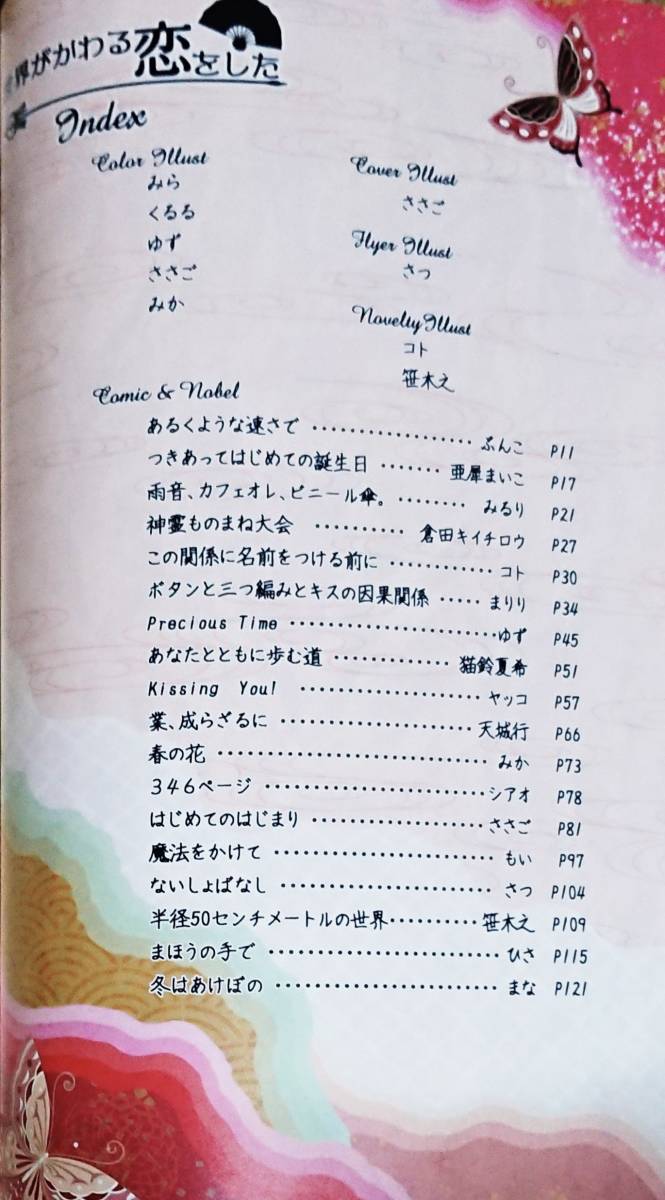 世界がかわる恋をした
Index
Color Illust
みら
くるる
ゆず
ささご
みか
Cover Illust
ささご
Flyer Illust
さつ
Novelty Illust
コト
笹木之
Comic & Nobel
あるくような速さで ぷんこ P11
つきあってはじめての誕生日 亜犀まいこ P17
雨音、カフェオレ、ビニール傘。 みるり P21
神霊ものまね大会 倉田キイチロウ P27
この関係に名前をつける前に コト P30
ボタンと三つ編みとキスの因果関係 まりり P34
Precious Time ゆず P45
あなたとともに歩む道 猫鈴夏希 P51
Kissing You! ヤッコ P57
業、成らざるに 天城行 P66
春の花 みか P73
346ページ シアオ P78
はじめてのはじまり ささご P81
魔法をかけて もい P97
ないしょばなし さつ P104
半径50センチメートルの世界 笹木之 P109
まほうの手で ひさ P115
冬はあけぼの まな P121